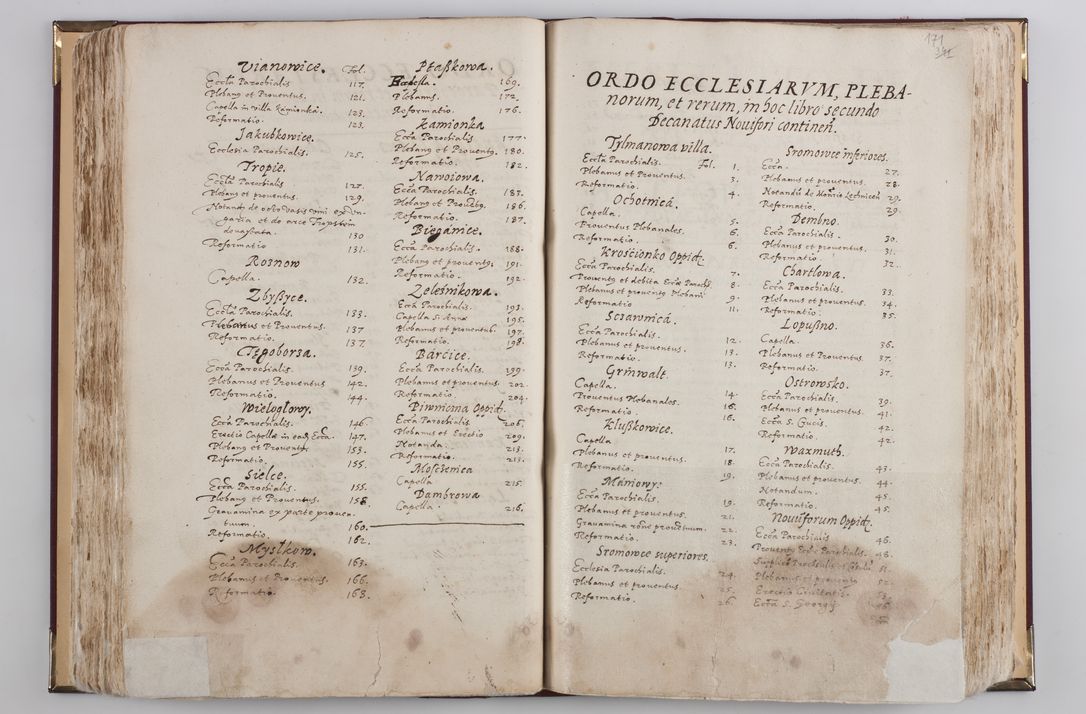 Vianowice. Fol.
Eccla Parochialis 117.
Plebang et Proventus. 121.
Capella in villa Kamionka. 123.
Reformatio. 123.
Jakubkowice.
Ecclesia Parochialis. 125.
Tropie.
Eccla Parochialis 127.
Plebang et proventus. 129.
130
Reformatio 131.
Roznow
Capella. 132.
Zbyßyce.
Eccla Parochialis. 133.
Plebanus et Proventus. 137
Reformatio. 137.
Tęgoborza.
Ecca Parochialis 139.
Plebanus et Proventus 142.
Reformatio. 144.
Wielogłowy.
Ecca Parochialis 146.
Erectio Capellæ in eadē Ecca. 147.
Plebang et Proventg. 153.
Reformatio. 155.
Sielce.
Ecca Parochialis. 155.
Plebang et Proventus. 158.
Gravamina ex parte proven-
tuum. 160.
Reformatio. 162.
Mystkow.
Ecca Parochialis. 163.
Plebanus et Proventus. 166.
Reformatio. 168.
Ptaßkowa.
Ecclesia. 169.
Plebanus. 172.
Reformatio. 176.
Kamionka
Ecca Parochialis 177.
Plebang et Proventg. 180.
Reformatio. 182.
Nawoiowa.
Ecca Parochialis. 183.
Plebang et Proventg. 186.
Reformatio. 187.
Bieganice.
Ecca Parochialis. 188.
Plebang et proventg. 191.
Reformatio. 192.
Zelesnikowa.
Ecca Parochialis. 193.
Capella S. Annæ 195.
Plebanus et proventus. 197.
Reformatio. 198.
Barcice.
Ecca Parochialis. 199.
Plebanus et proventus. 202.
Reformatio. 204.
Piwniczna Oppid.
Ecca Parochialis 206.
Plebanus et Erectio 209.
Notanda. 213.
Reformatio. 213.
Mosczenica
Capella 215.
Dambrowa
Capella. 216.
171
ORDO ECCLESIARVM, PLEBA-
norum, et rerum, in hoc libro secundo
Decanatus Novifori continen.
Tylmanowa villa.
Eccla Parochialis. Fol. 1.
Plebanus et Proventus. 3.
Reformatio. 4.
Ochotnica.
Capella. 5.
Proventus Plebanales. 6.
Reformatio. 6.
Kroscienko Oppid.
Ecca Parochialis. 7.
Proventg et debita Eccæ Paroch. 8.
Plebanus et proventg Plebani 9.
Reformatio 11.
Sczawnica.
Ecca Parochialis. 12.
Plebanus et proventus. 13.
Reformatio. 13.
Grinwalt.
Capella. 14.
Proventus Plebanales. 16.
Reformatio. 16.
Klußkowice.
Capella 17.
Plebanus et proventus. 18.
Reformatio. 19.
Maniowy.
Ecca Parochialis. 19.
Plebanus et proventus. 21.
Gravamina rõne proventuum. 22.
Reformatio. 23.
Sromowce superiores.
Ecclesia Parochialis. 24.
Plebanus et proventus. 25.
Reformatio. 26.
Sromowce inferiores.
Ecca. 27.
Plebanus et proventus. 28.
29.
Reformatio. 29.
Dembno.
Ecca Parochialis. 30.
Plebanus et proventus. 31.
Reformatio. 32.
Chartlowa.
Ecca Parochialis. 33.
Plebanus et proventus. 34.
Reformatio. 35.
Lopußno.
Capella. 36.
Plebanus et Proventus. 37.
Reformatio. 37.
Ostrowsko.
Ecca Parochialis. 39.
Plebanus et proventus 41.
Ecca S. Crucis. 42.
Reformatio. 42.
Waxmuth.
Ecca Parochialis. 43.
Plebanus et proventus. 44.
Notandum. 45.
Reformatio. 45.
Noviforum Oppid.
Ecca Parochialis 46.
Proventg Ecc. Parochialis. 48.
51.
Plebanus et proventg 52.
Erectio Civitatis 53.
Ecca S. Georgij 56.